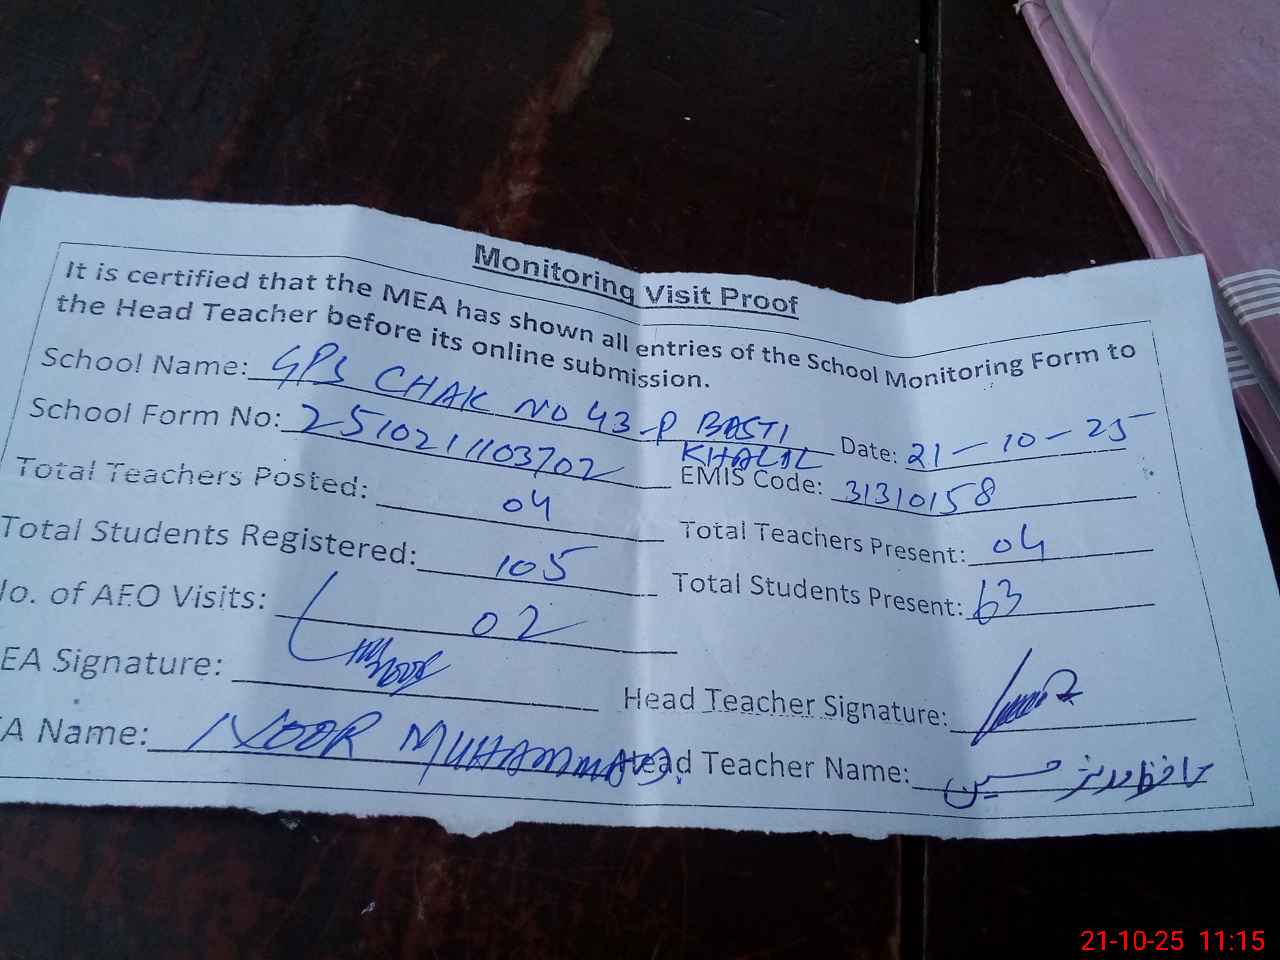 Monitoring Visit Proof
It is certified that the MEA has shown all entries of the School Monitoring Form to
the Head Teacher before its online submission.
School Name: GPS CHAK NO 43-P BASTI KHALIL Date: 21-10-25
School Form No: 2510211103702 EMIS Code: 31310158
Total Teachers Posted: 04 Total Teachers Present: 04
Total Students Registered: 105 Total Students Present: 63
No. of AEO Visits: 02
EA Signature: Head Teacher Signature:
A Name: NOOR MUHAMMAD. Head Teacher Name: حافظ حسین
21-10-25 11:15